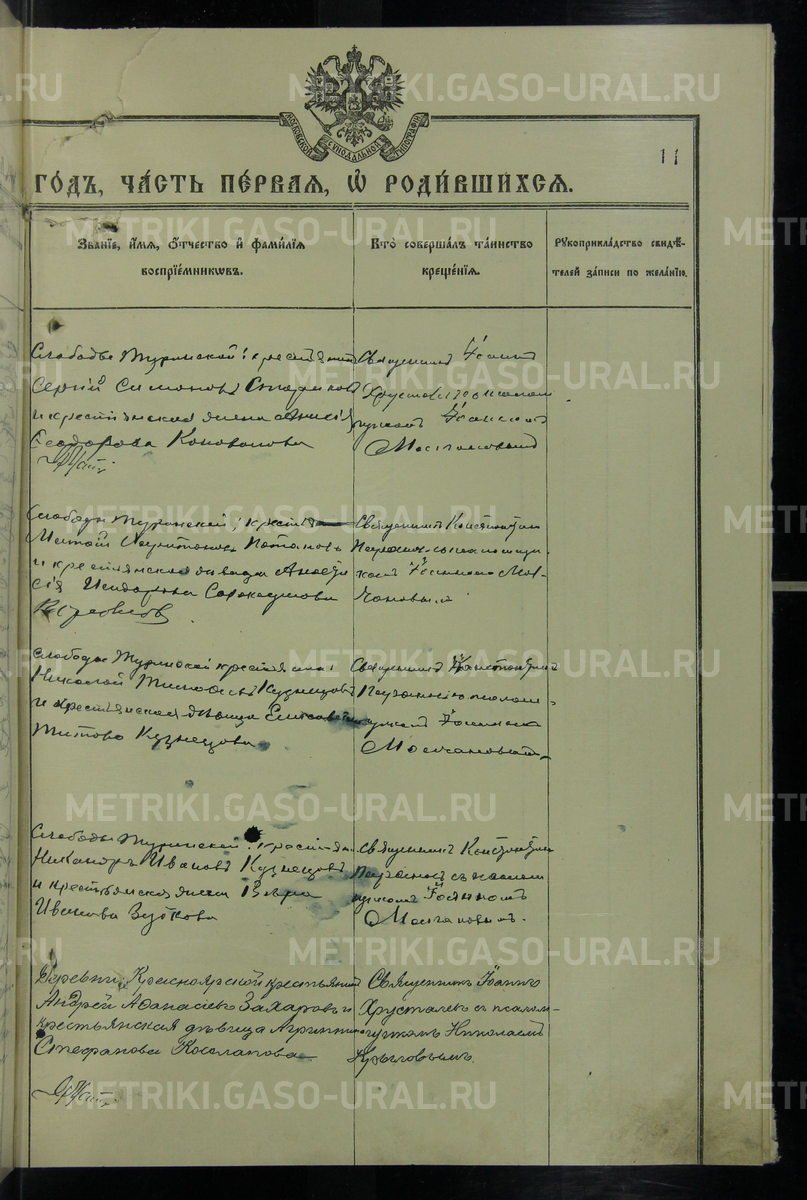 МОСКОВСКОЙ СѴНОДАЛЬНОЙ ТИПОГРАФІИ
11
ГО́ДЪ, ЧА́СТЬ ПЕ́РВАЯ, Ѡ҆ РОДИ́ВШИХСЯ.
Зва́нїе, и҆́мѧ, ѻ҆́тчество и҆ фами́лїѧ
воспрїе́мникѡвъ.
Кто̀ соверша́лъ та́инство
креще́нїѧ.
Рꙋкоприкла́дство свидѣ́-
телей за́писи по жела́нїю.
Слободы Туринской: крестьянин
Сергій Симоновъ Стариков
и крестьянская жена Анисія
Ѳеодорова Коновалова
Священникъ Іоаннъ
Хрусталев съ псалом
щикомъ Іоанномъ
Молчановымъ
Слободы Туринской; крестья
Потаповъ
и крестьянская вдова
Исидорова
Священникъ Константин
съ псаломщи
комъ Іоанномъ Мол-
чановым
Слободы Туринской крестьянинъ
Николай Кузнецовъ
и крестьянская дѣвица Елисавета
Титова Кузнецова
Священникъ Константинъ
псалом-
щикомъ Іоанномъ
Молчановымъ
Слободы Туринской: крестьян
Никаноръ Ивановъ Кузнецовъ
и крестьянская жена Вѣра
Иванова Зуткова
Священникъ Константин
съ псалом
щикомъ Іоанномъ
Молчановымъ.
Деревни Красноярской крестьянинъ
Андрей Аѳанасіевъ Захаровъ и
крестьянская дѣвица Агриппина
Стефанова Косолапова
Священникъ Іоаннъ
Хрусталевъ съ псалом-
щикомъ Николаемъ
Крыловымъ.
METRIKI.GASO-URAL.RU